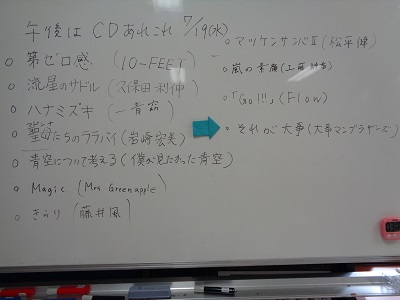 午後は CDあれこれ 7/19(水)
○ 第ゼロ感 (10-FEET)
○ 流星のサドル (久保田利伸)
○ ハナミズキ (一青窈)
○ 聖母たちのララバイ (岩崎宏美)
○ 青空について考える (僕が見たかった青空)
○ Magic (Mrs Greenapple)
○ きらり (藤井風)
○ マツケンサンバⅡ (松平健)
○ 嵐の素顔 (工藤静香)
○ 「Go!!!」 (Flow)
○ それが大事 (大事マンブラザーズ)